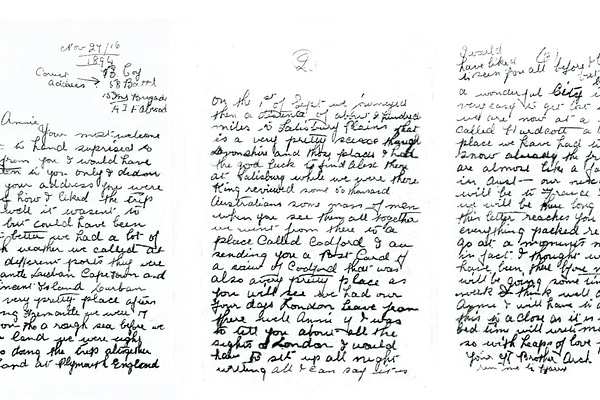 Nov 27/16
1894
Correct B Coy
address 58 Batt
15 Inf Brigade
A I F Abroad
Annie
Your most welcome
to hand suprised to
from you I would have
to you only I didnt
your address you were
how I liked the trip
well it wasent to
but could have been
better we had a lot of
weather we called at
different ports they were
Durban Capetown and
Vincent Island Durban
very pretty place after
Fremantle we were 17
on the a rough sea before we
land we were eight
doing the trip altogether
land at Plymouth England
2
on the 1st of Sept we journeyed
then a distance of about a hundred
miles to Salisbury Plains that
is a very pretty scene through
Devonshire and those places I had
the good luck to find close there
at Salisbury while we were there
King reviewed some thousand
Australians some mass of men
when you see them all together
we went from there to a
place called Codford I am
sending you a Post Card of
a scene of Codford that was
also a very pretty place as
you will see we had our
four days London leave from
there well Annie if I was
to tell you about all the
sights of London I would
have to set up all night
writing all I can say its
I would
have liked
to seen you all before I
a wonderful City
very easy to get lost
we are now at a
called Hurdcott a
place we have had
snow already the
are almost like a
in Aust our next
will be to France
we will be here long
this letter reaches you
everything packed
go at a moments
in fact I thought
have been there
will be going some
week I think well
Annie I will have to
this to a close as it is
bed time will write
so with heaps of love
Your Brother Arch